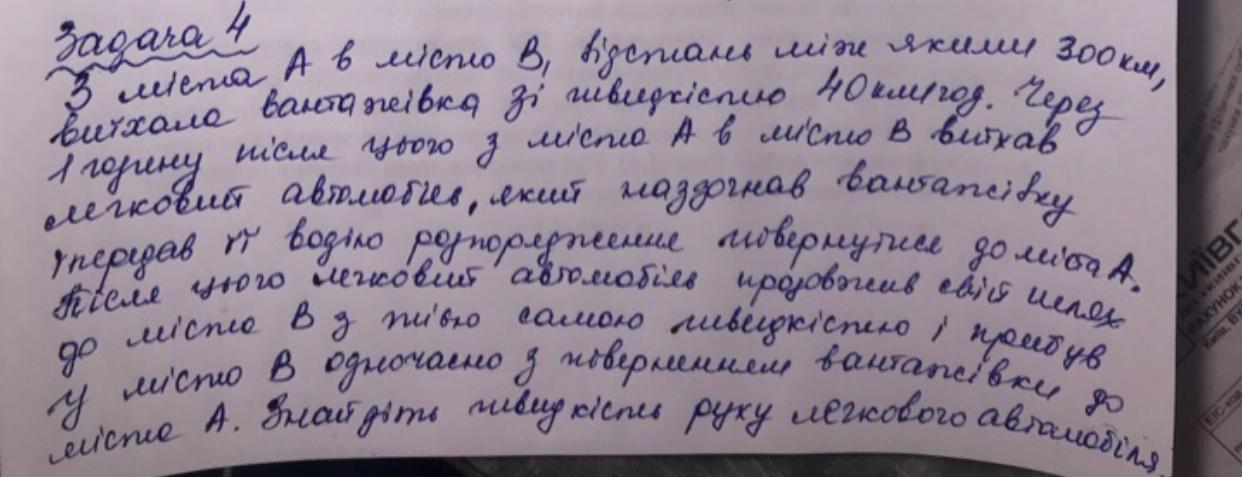 Задача 4
З міста А в місто В, відстань між якими 300 км,
виїхала вантажівка зі швидкістю 40 км/год. Через
1 годину після цього з міста А в місто В виїхав
легковий автомобіль, який наздогнав вантажівку
і передав її водію розпорядження повернутися до міста А.
Після цього легковий автомобіль продовжив свій шлях
до міста В з тією самою швидкістю і прибув
у місто В одночасно з поверненням вантажівки до
міста А. Знайдіть швидкість руху легкового автомобіля.
КИЇВГ
РАХУНОК